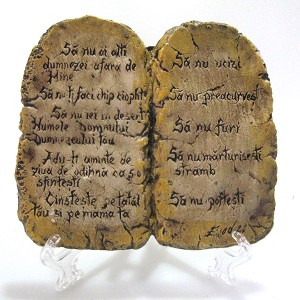 Să nu ai alți
dumnezei afara de
Mine
Să nu-ți faci chip cioplit
Să nu iei in desert
Numele Domnului
Dumnezeului tău
Adu-ți aminte de
ziua de odihnă ca s-o
sfintesti
Cinsteste pe tatăl
tău si pe mama ta
Să nu ucizi
Să nu preacurvesti
Să nu furi
Să nu mărturisesti
strâmb
Să nu poftesti